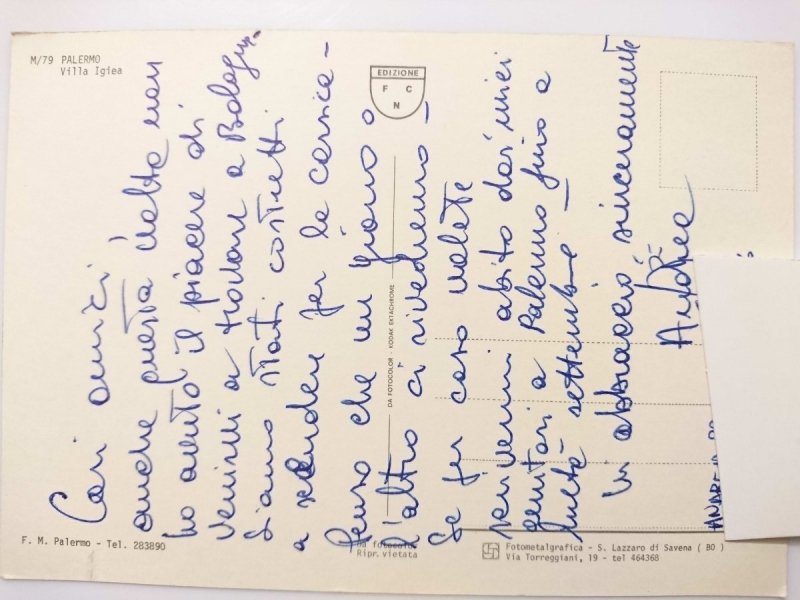 M/79 PALERMO
Villa Igiea
EDIZIONE
F C
N
Cari amici,
anche questa volta non
ho avuto il piacere di
venirvi a trovare a Bologna.
Siamo stati costretti
a scendere per la corsica-
Penso che un giorno o
l'altro ci rivedremo-
Se per caso volete
scrivermi abito dai miei
genitori a Palermo fino a
metà settembre-
Un abbraccio sinceramente
Andrea
DA FOTOCOLOR - KODAK EKTACHROME
F. M. Palermo - Tel. 283890
Da fotocolor
Ripr. vietata
Fotometalgrafica - S. Lazzaro di Savena ( BO )
Via Torreggiani, 19 - tel 464368